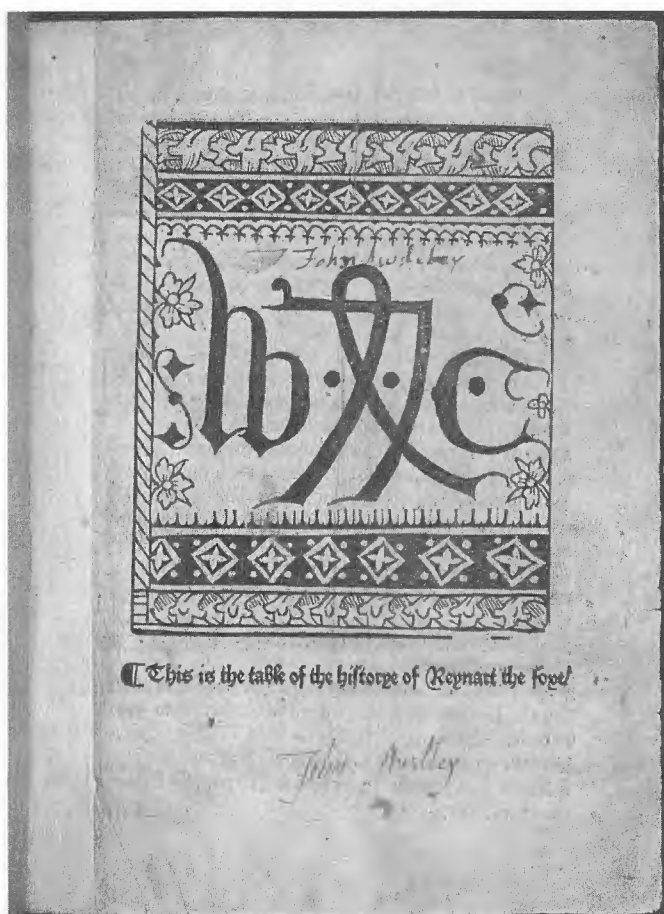 John
W C
¶ This is the table of the hiſtorye of Reynart the foxe/
John